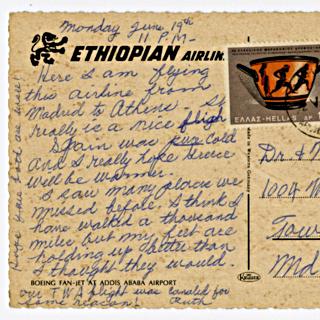 Monday June 19th
11 P.M.
ETHIOPIAN AIRLIN
Here I am flying
this airline from
Madrid to Athens. It
really is a nice flight
Spain was cold
And I really hope Greece
will be warmer.
I saw many places we
missed before. I think I
have walked a thousand
miles but my feet are
holding up better than
I thought they would.
BOEING FAN-JET AT ADDIS ABABA AIRPORT
our TWA flight was canceled for
some reason! Ruth
Hope you both are well!
ΕΛΛΑΣ-HELLAS ΔΡ
Dr. & M
1009 W
Tow
Md
Krüger